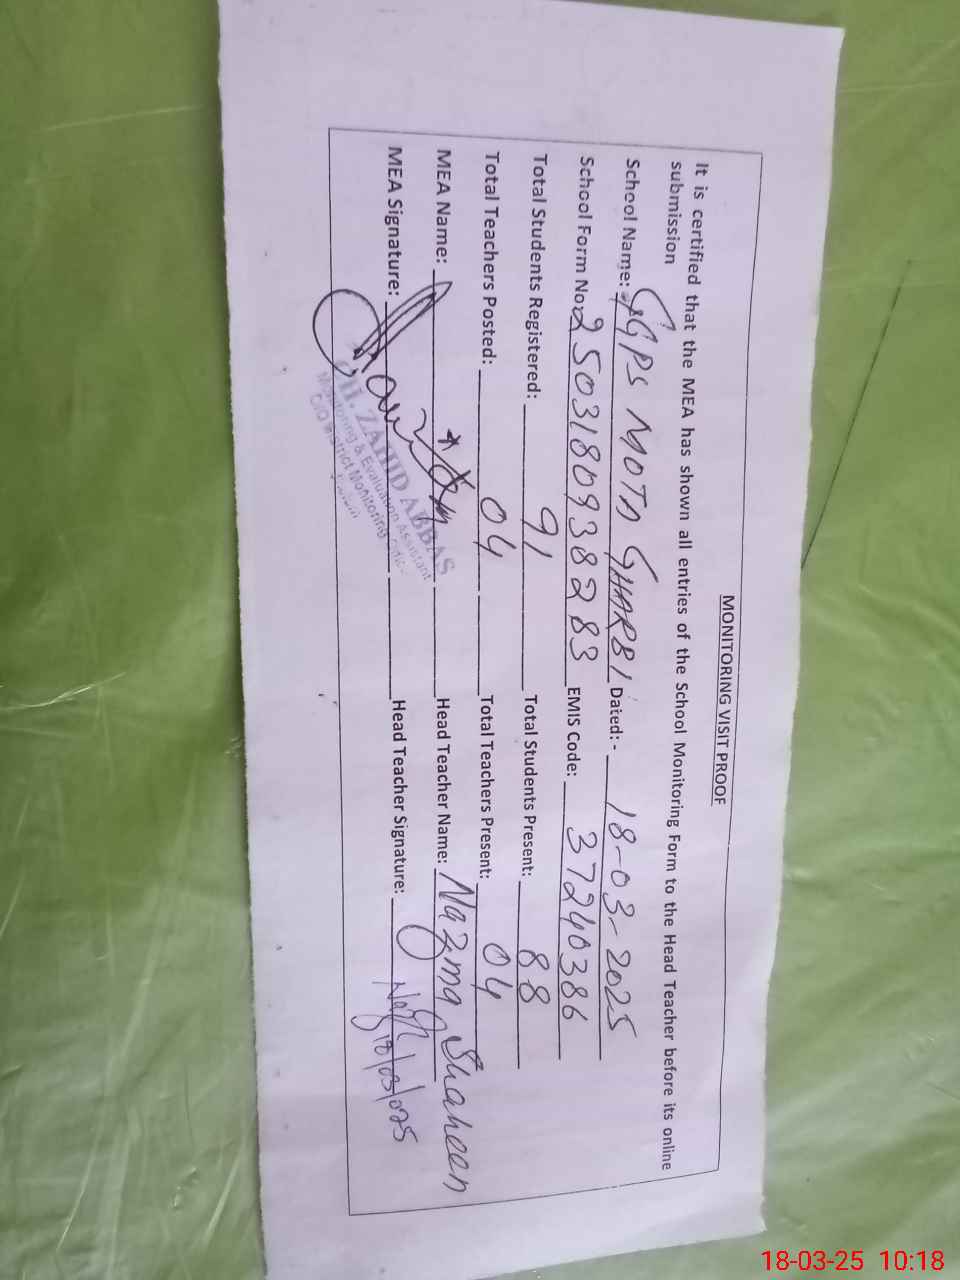 MONITORING VISIT PROOF
It is certified that the MEA has shown all entries of the School Monitoring Form to the Head Teacher before its online
submission
School Name: GGPS MOTA GHARBI Dated:- 18-03-2025
School Form No: 2503180938283 EMIS Code: 37240386
Total Students Registered: 91 Total Students Present: 88
Total Teachers Posted: 04 Total Teachers Present: 04
MEA Name: Head Teacher Name: Nazma Shaheen
MEA Signature: Head Teacher Signature:
CH. ZAHID ABBAS
Monitoring & Evaluation Assistant
O/O District Monitoring
18-03-25 10:18